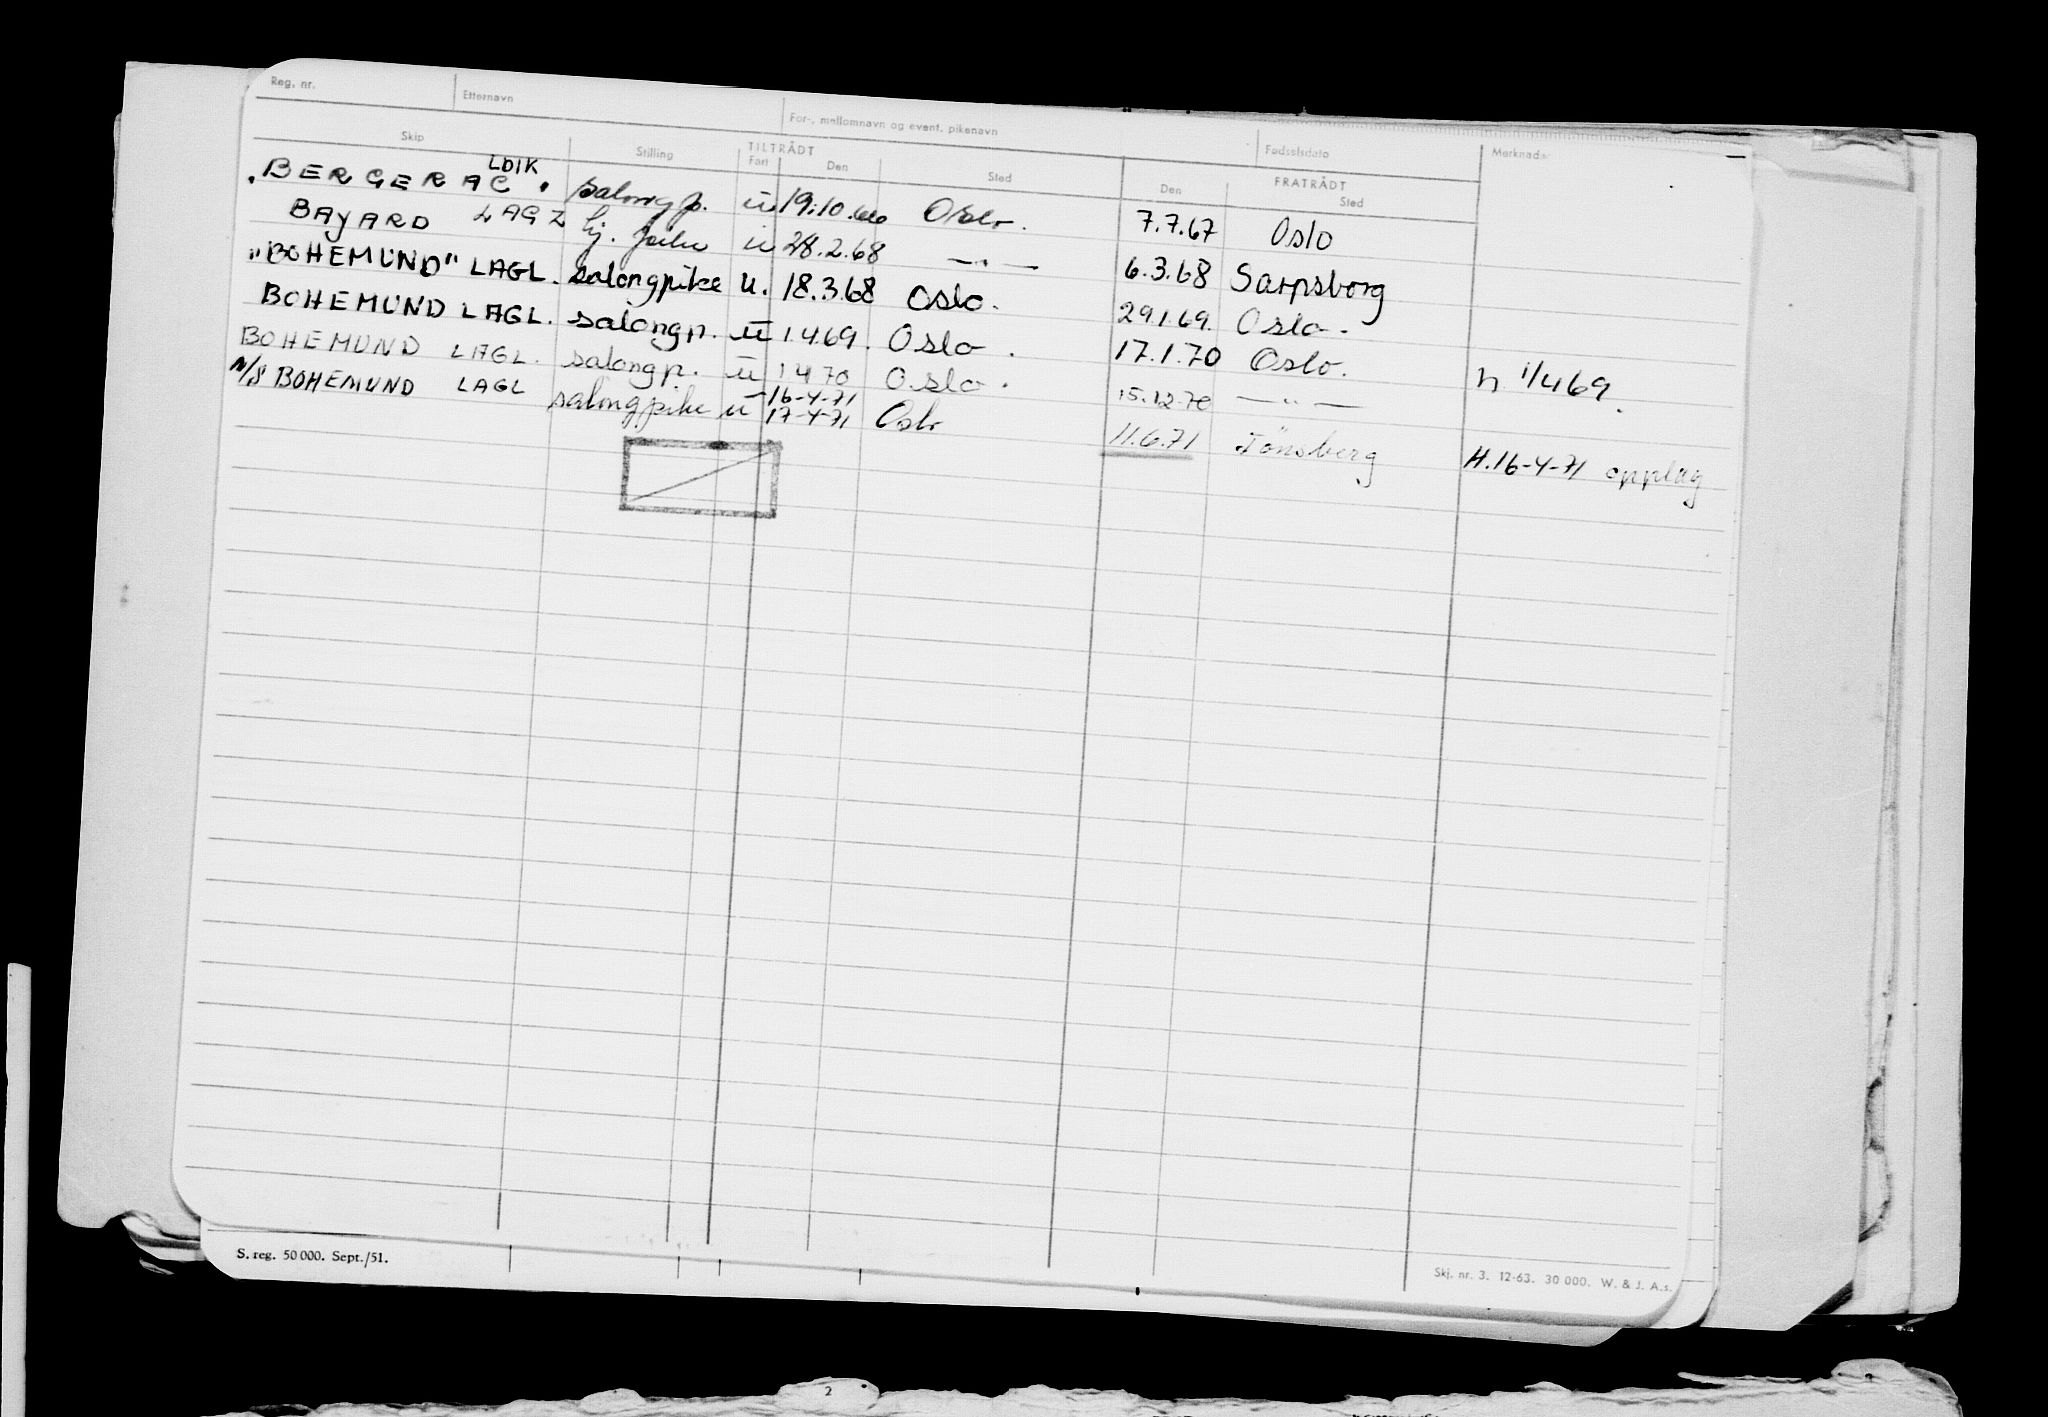 Reg. nr. Etternavn For-, mellomnavn og event. pikenavn Fødselsdato Merknader
Skip Stilling TILTRÅDT Fart Den Sted FRATRÅDT Den Sted
"BERGERAC" LDIK salongp. u 19.10.66 Oslo. 7.7.67 Oslo
BAYARD LAGZ hj. u 28.2.68 —"— 6.3.68 Sarpsborg
"BOHEMUND" LAGL. salongpike u. 18.3.68 Oslo. 29.1.69. Oslo.
BOHEMUND LAGL. salongp. u 1.4.69. Oslo. 17.1.70 Oslo. h 1/4 69.
BOHEMUND LAGL. salongp. u 1.4.70 Oslo. 15.12.70 —"—
M/S BOHEMUND LAGL salongpike u 16-4-71
17-4-71 Oslo 11.6.71 Tönsberg H.16-4-71 opplag
S. reg. 50 000. Sept./51.
Skj. nr. 3. 12-63. 30 000. W. & J. A.s.
2